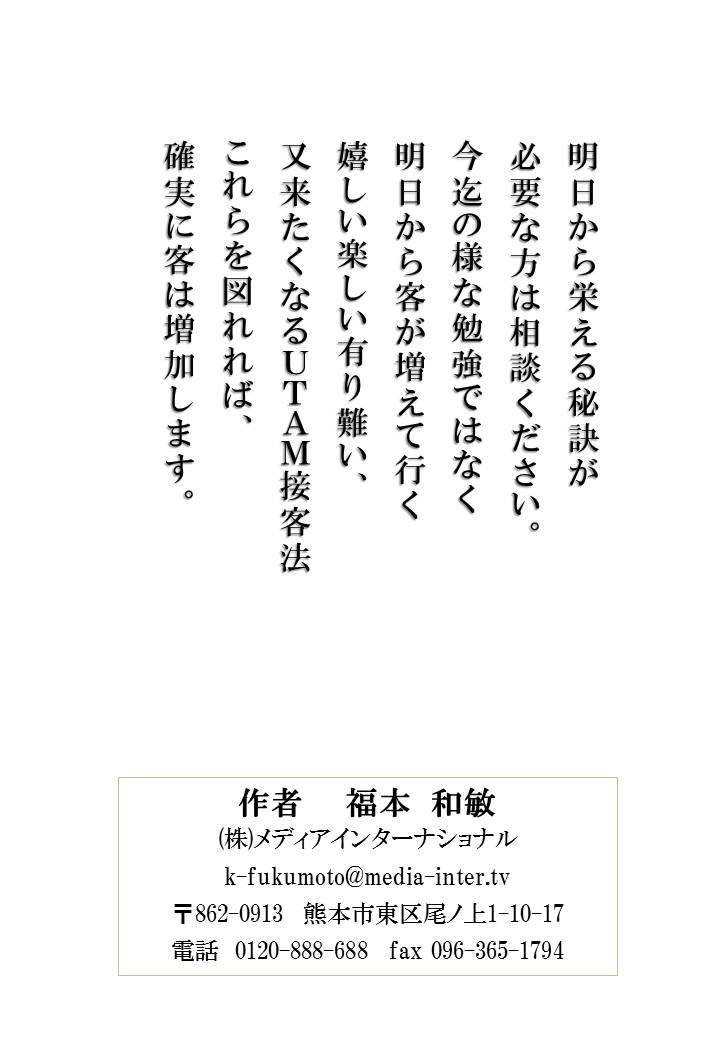 明日から栄える秘訣が
必要な方は相談ください。
今迄の様な勉強ではなく
明日から客が増えて行く
嬉しい楽しい有り難い、
又来たくなるUTAM接客法
これらを図れれば、
確実に客は増加します。
作者　福本　和敏
(株)メディアインターナショナル
k-fukumoto@media-inter.tv
〒862-0913　熊本市東区尾ノ上1-10-17
電話　0120-888-688　fax 096-365-1794